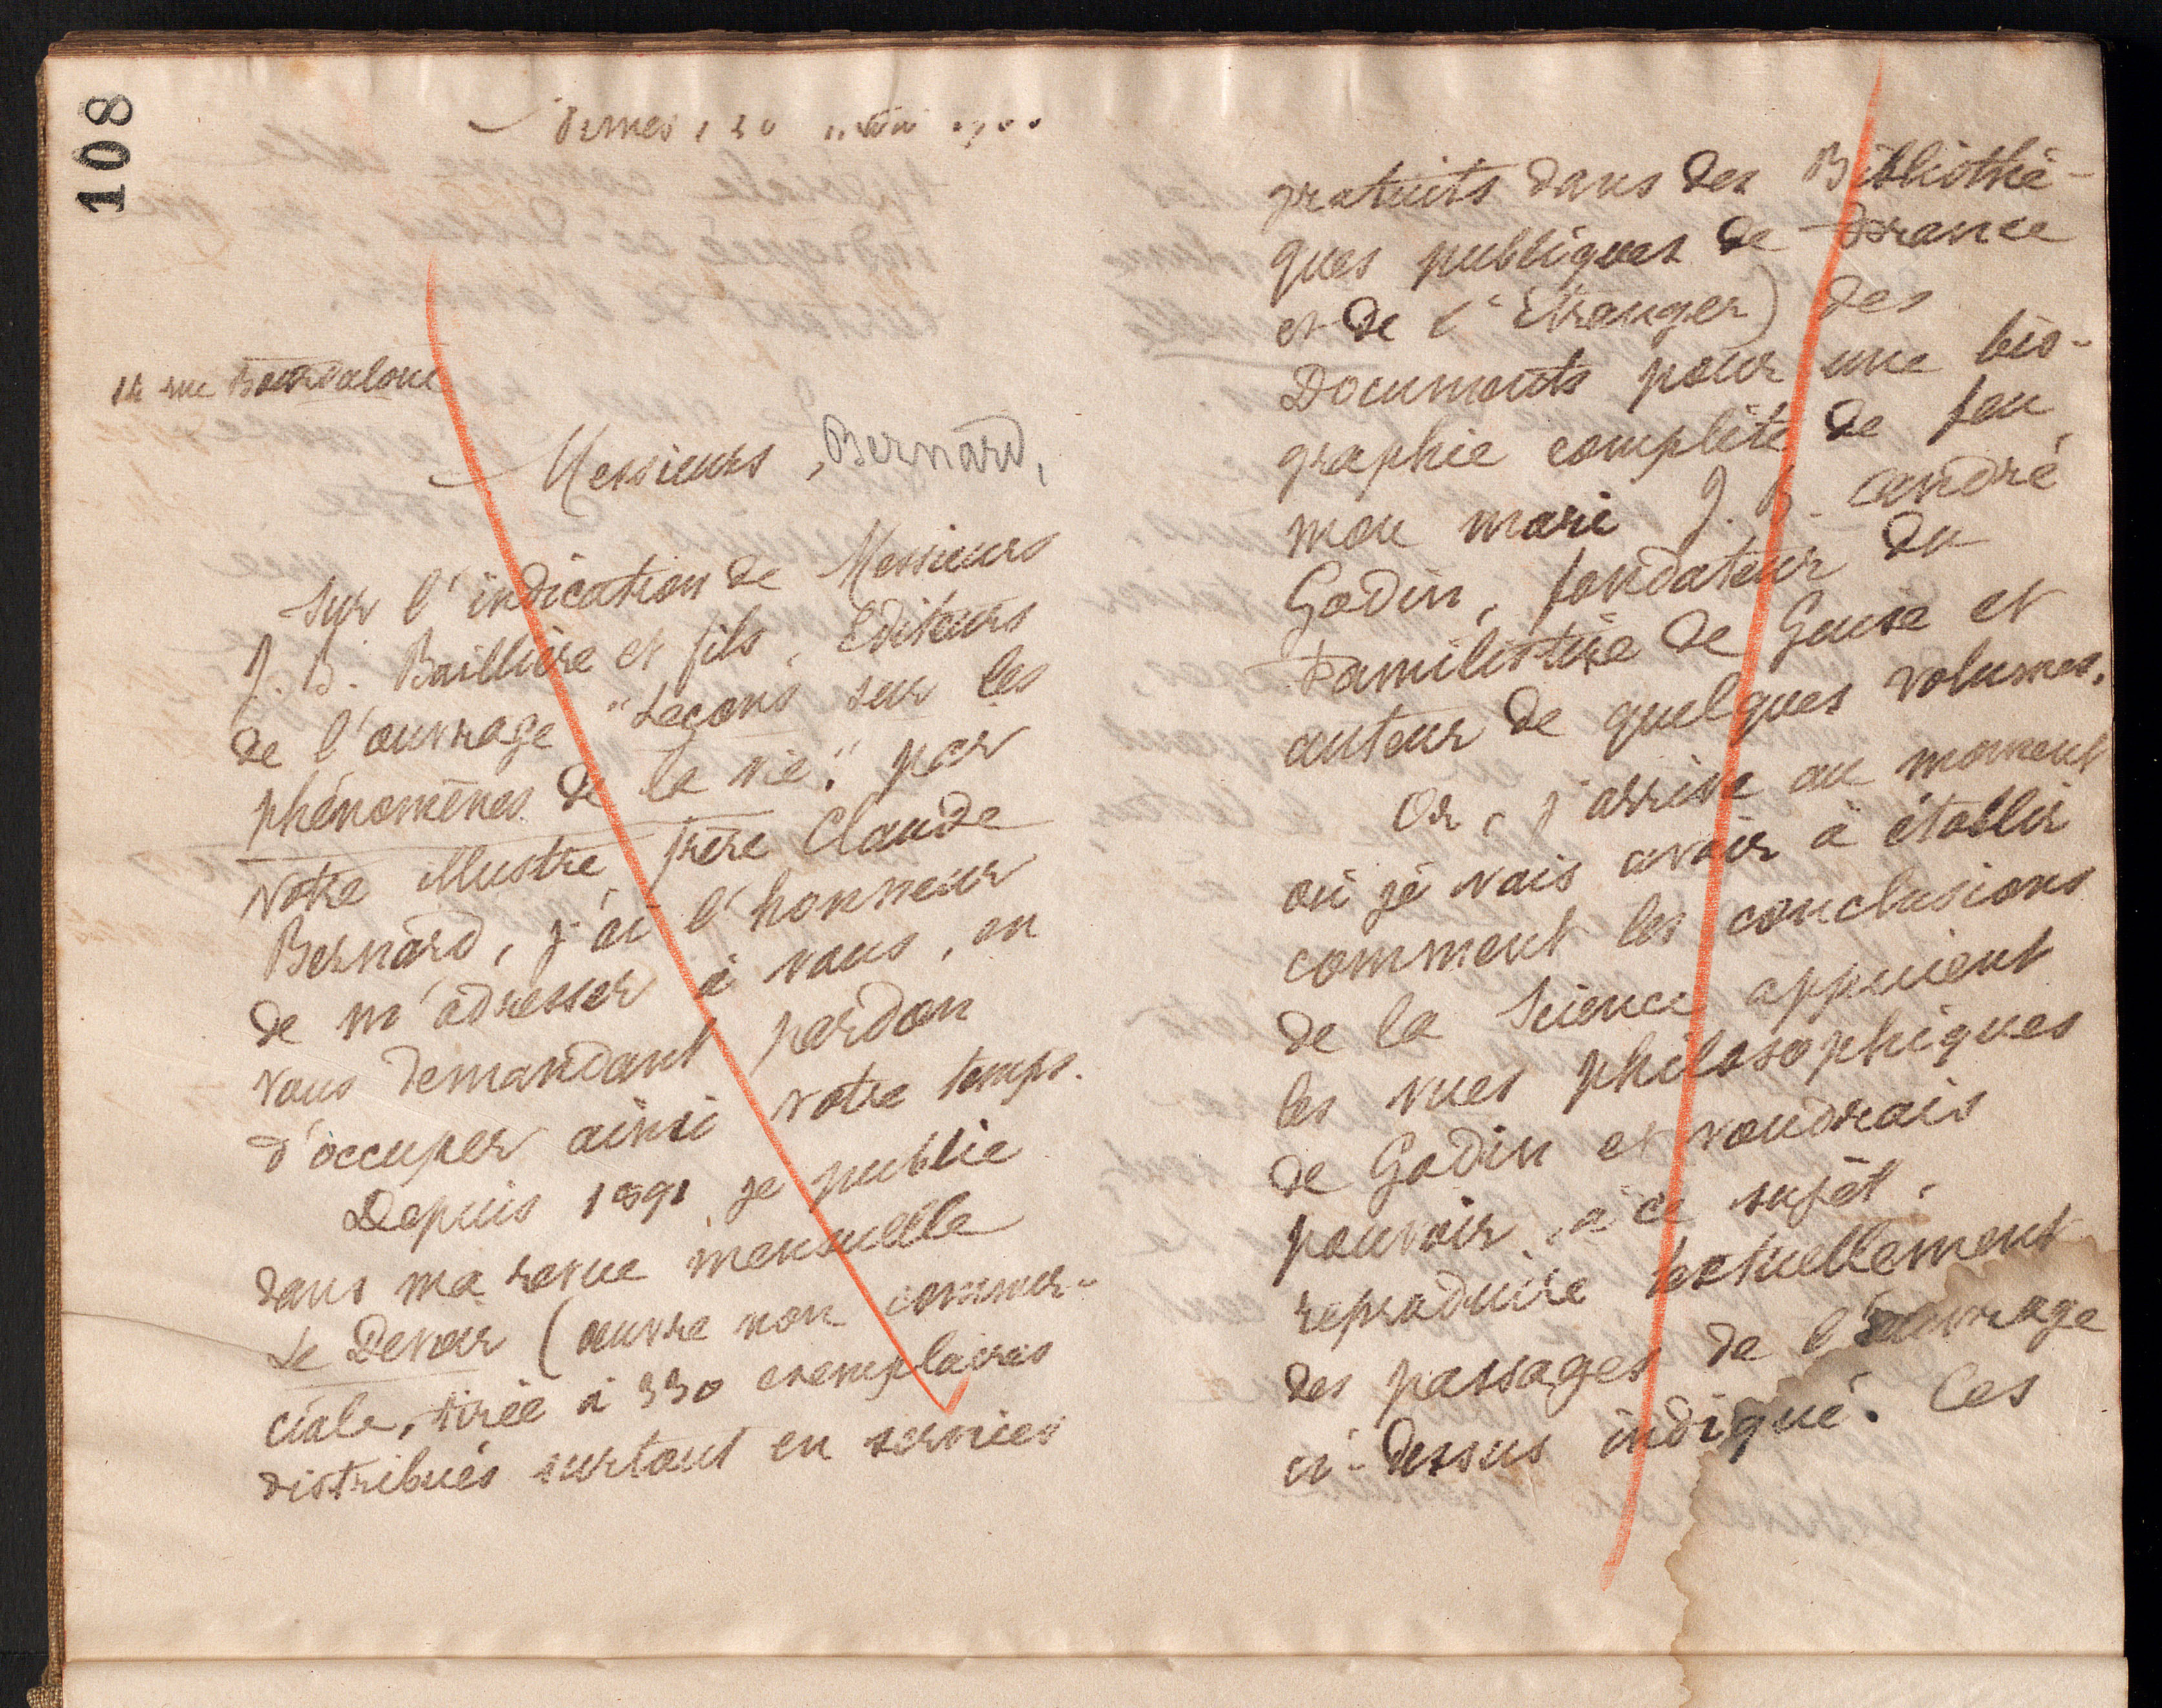 108
Nîmes, 20
14 rue Bourdaloue
Messieurs, Bernard,
Sur l'indication de Messieurs
J. B. Baillière et fils, Editeurs
de l'ouvrage "Leçons sur les
phénomènes de la vie" par
votre illustre frère Claude
Bernard, j'ai l'honneur
de m'adresser à vous, en
vous demandant pardon
d'occuper ainsi votre temps.
Depuis 1891 je publie
dans ma revue mensuelle
Le Devoir (œuvre non commer-
ciale, tirée à 330 exemplaires
distribués surtout en services
gratuits dans des Bibliothè-
ques publiques de France
et de l'Etranger) des
Documents pour une bio-
graphie complète de feu
mon mari J. B. André
Godin, fondateur du
Familistère de Guise et
auteur de quelques volumes.
Or, j'arrive au moment
où je vais avoir à établir
comment les conclusions
de la Science appuient
les vues philosophiques
de Godin et voudrais
pouvoir, à ce sujet,
reproduire textuellement
des passages de l'ouvrage
ci-dessus indiqué. Ces